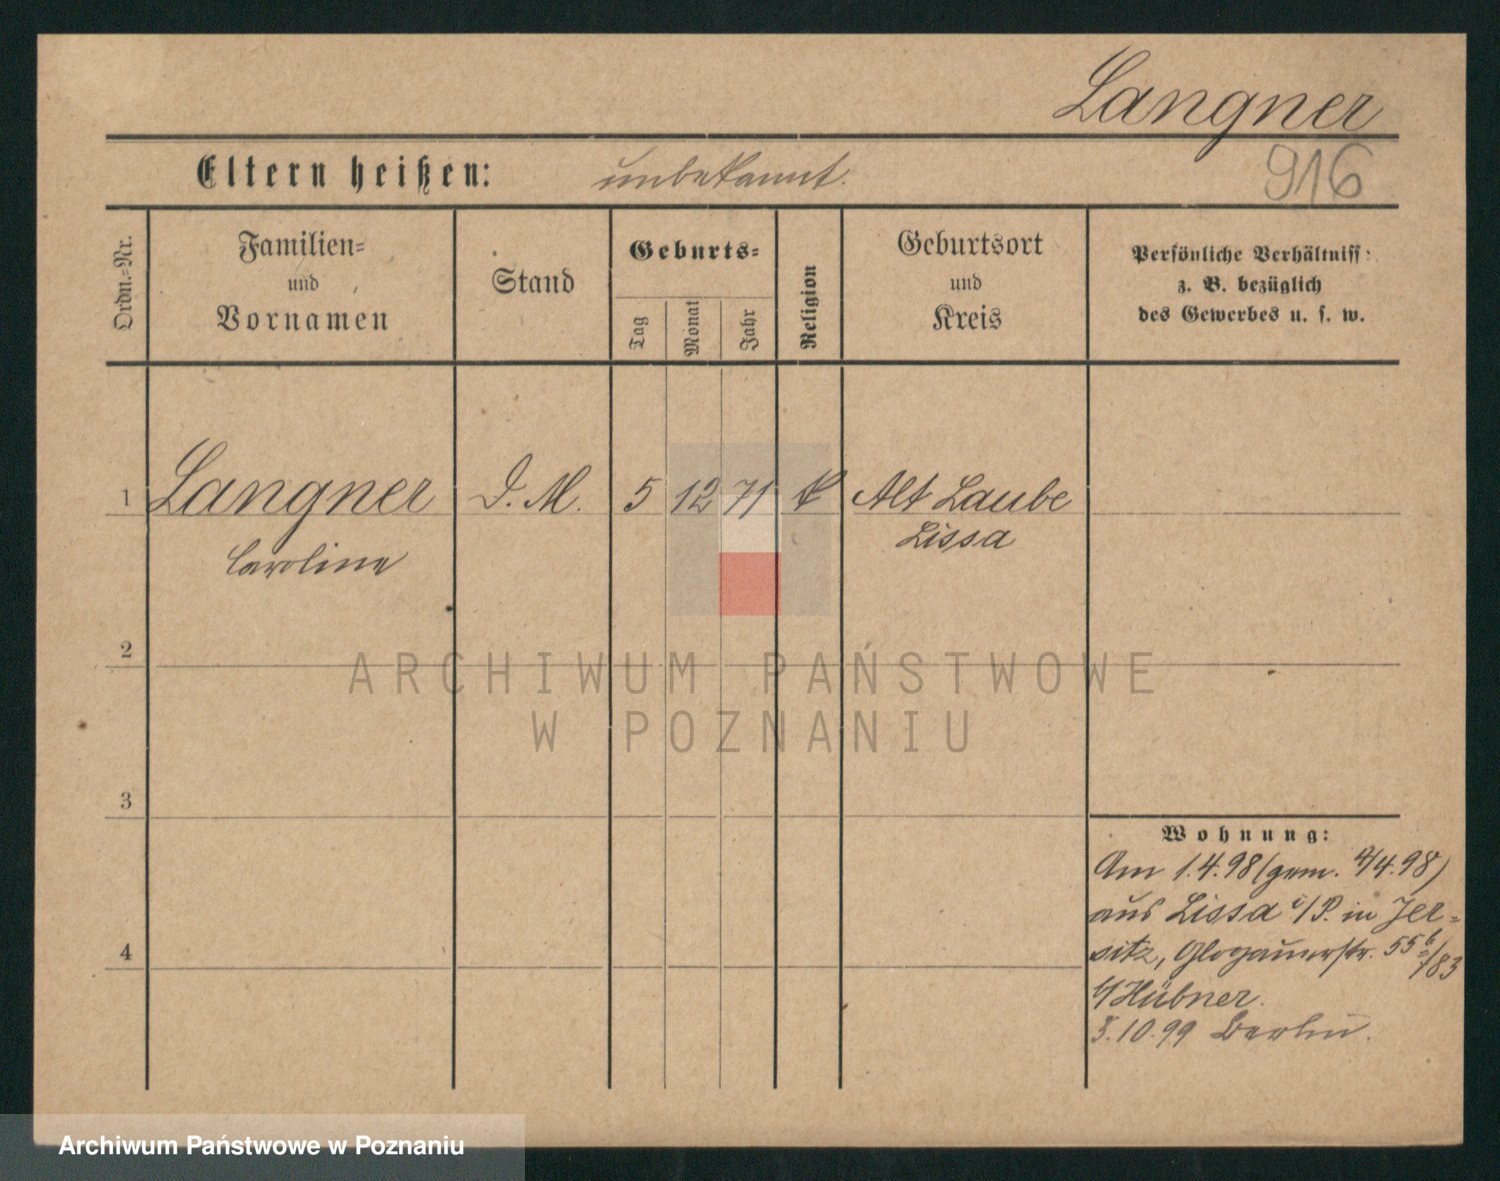 Langner
Eltern heißen: unbekannt.
916
Ordn.-Nr.
Familien-
und
Vornamen
Stand
Geburts-
Tag
Monat
Jahr
Religion
Geburtsort
und
Kreis
Persönliche Verhältniss
z. B. bezüglich
des Gewerbes u. s. w.
1 Langner D. M. 5 12 71 k Alt Laube
Caroline Lissa
2
3
4
ARCHIWUM PAŃSTWOWE
W POZNANIU
Wohnung:
Am 1.4.98 (gem. 4/4.98)
aus Lissa i/P. in Jer-
sitz, Glogauerstr. 55
b/Hübner.
3.10.99 Berlin.
Archiwum Państwowe w Poznaniu